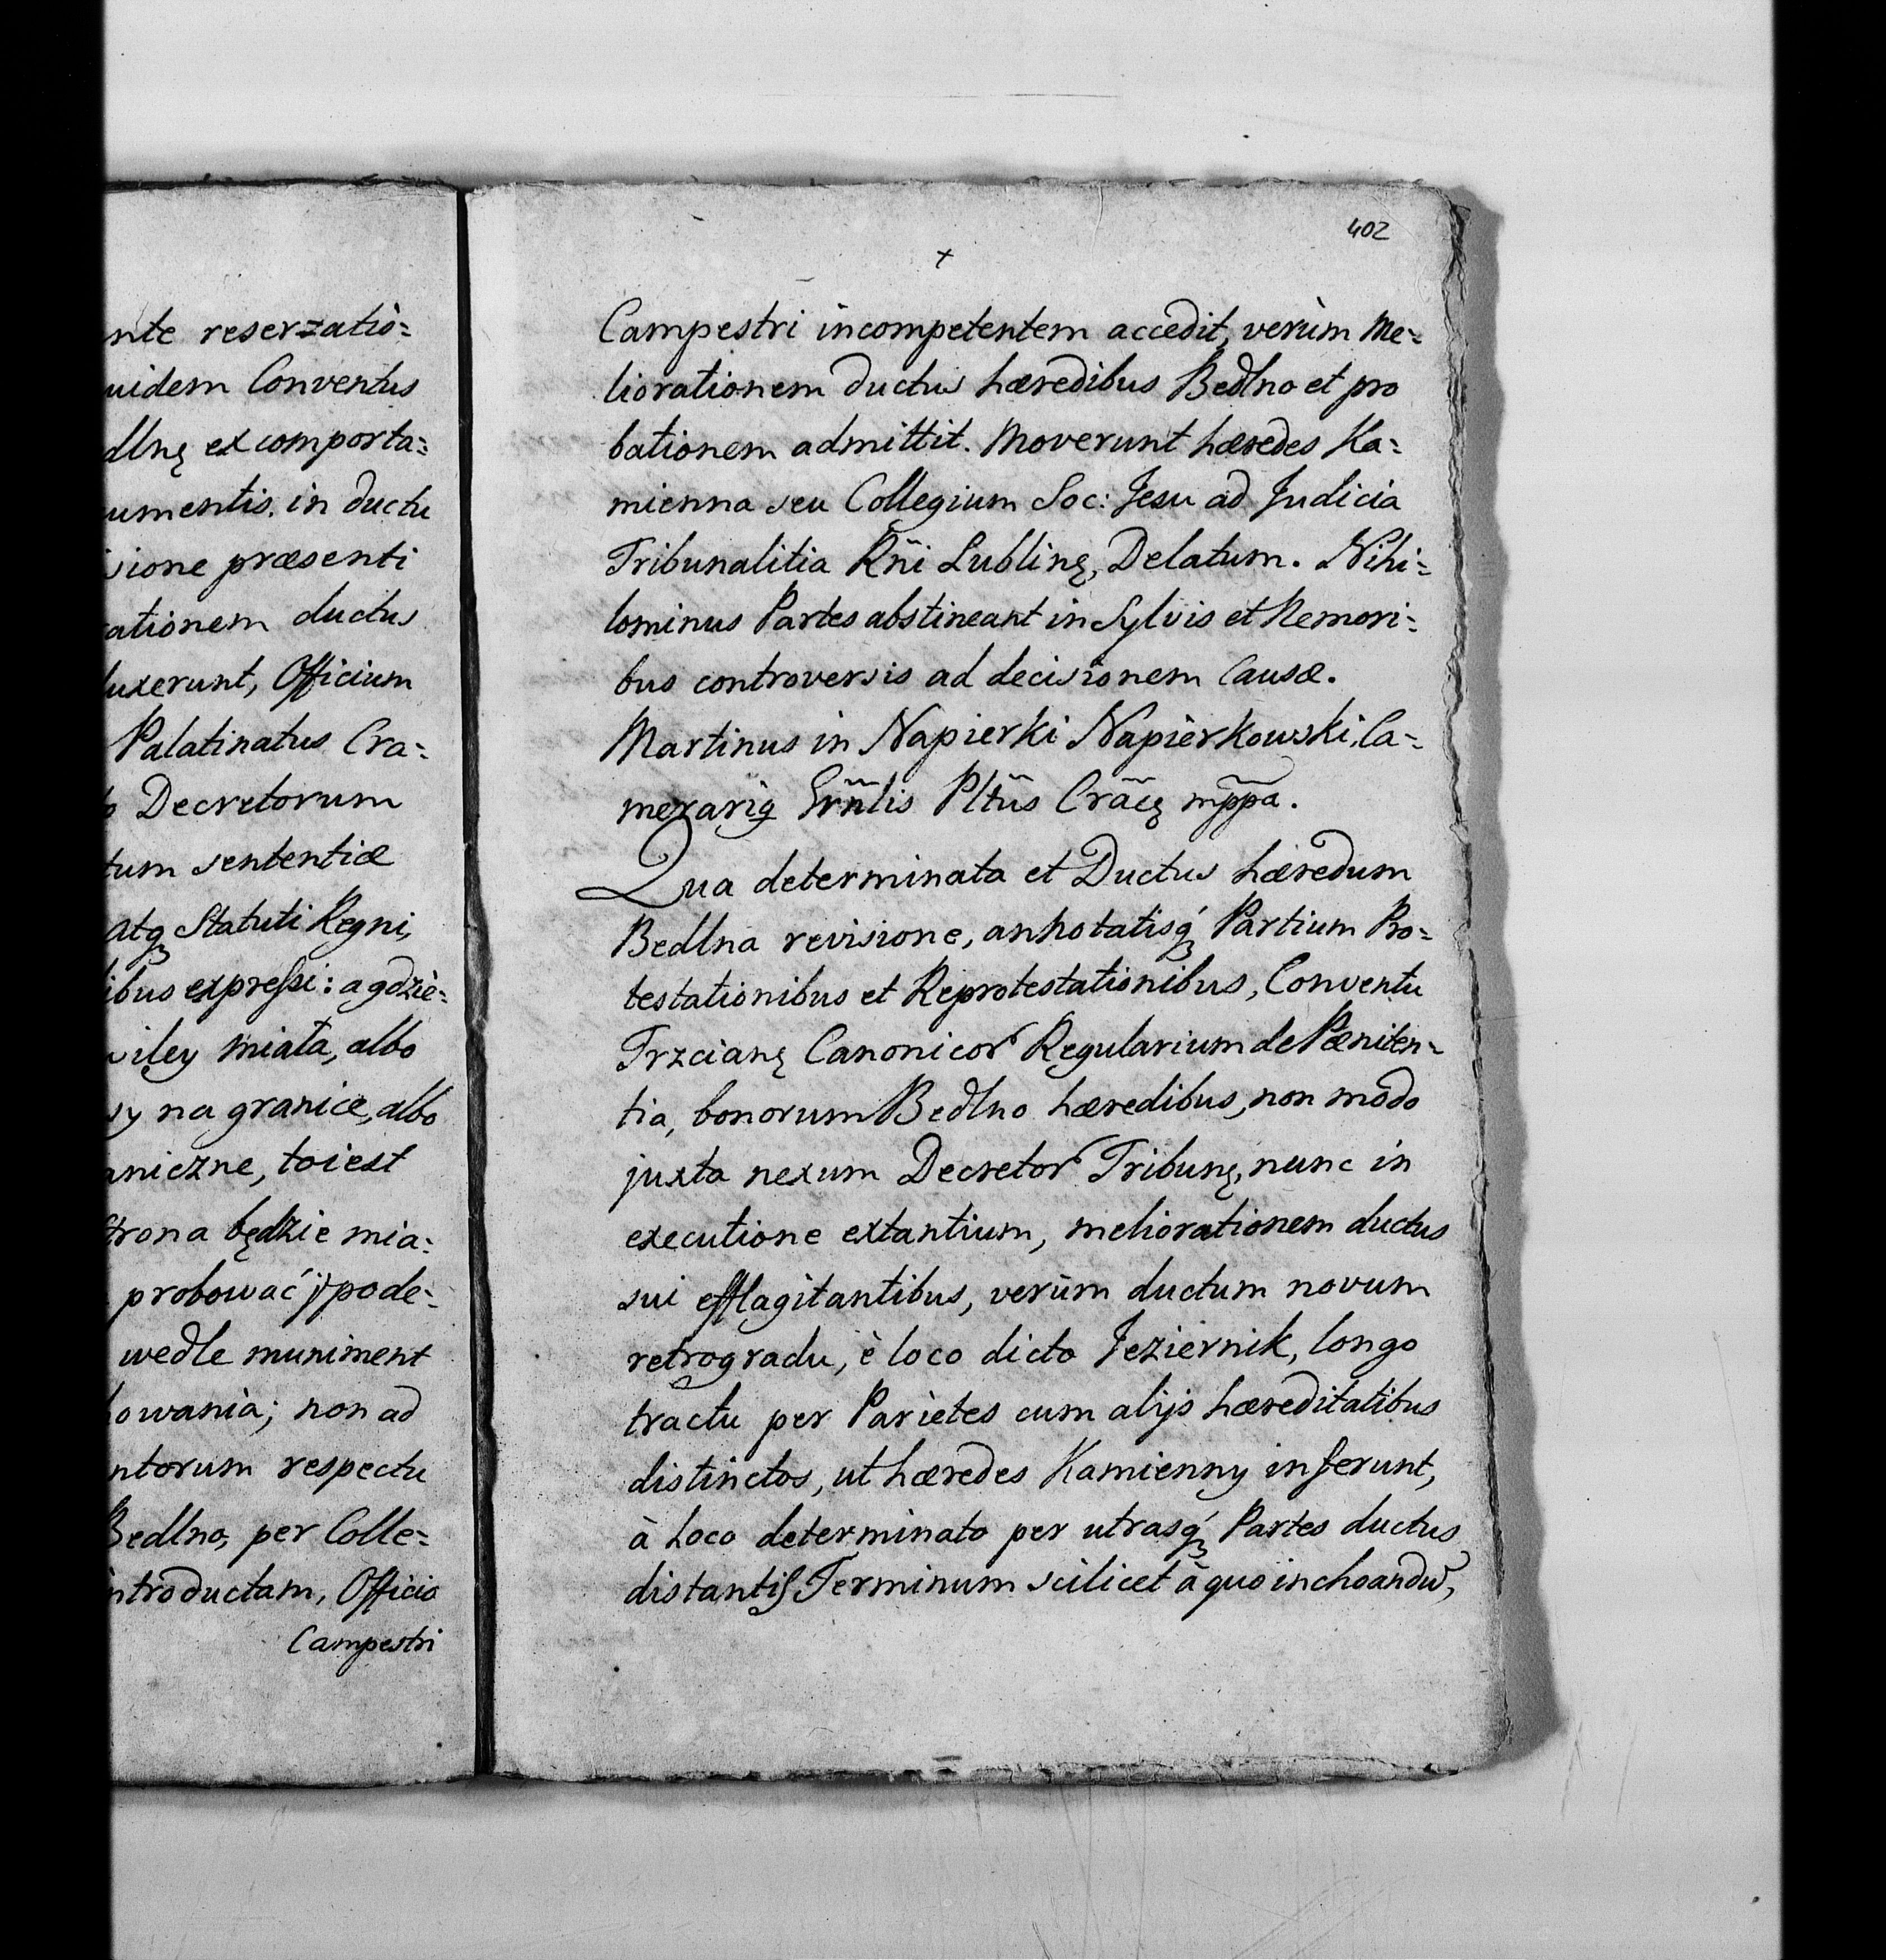 nte reserzatio=
uidem Conventus
dlnę ex comporta=
umentis in ductu
sione præsenti
ationem ductus
luxerunt, Officium
Palatinatus Cra=
Decretorum
tum sententiæ
atq₃ Statuti Regni,
ibus expreſsi: a gdzie=
wiley miała, albo
sy na granice, albo
aniczne, toiest
trona będzie mia=
probować y pode=
wedle muniment
howania; non ad
ntorum respectu
Bedlno, per Colle=
ntroductam, Officio
Campestri
402
+
Campestri incompetentem accedit, verùm Me=
liorationem ductus hæredibus Bedlno et pro
bationem admittit. Moverunt hæredes Ka=
mienna seu Collegium Soc: Jesu ad Judicia
Tribunalitia Rñi Lublinę, Delatum. Nihi=
lominus Partes abstineant in Sylvis et Nemori=
bus controversis ad decisionem Causæ.
Martinus in Napierki Napierkowski, Ca=
merarig Grñlis Pltũs Crãcę mp̃pa.
Qua determinata et Ductus hæredum
Bedlna revisione, annotatisq́₃ Partium Pro=
testationibus et Reprotestationibus, Conventu
Trzcianę Canonicor Regularium de Pœniten=
tia, bonorum Bedlno hæredibus, non modo
juxta nexum Decretor Tribunę, nunc in
executione extantium, meliorationem ductus
sui efflagitantibus, verùm ductum novum
retrogradu, è loco dicto Jeziernik, longo
tractu per Parietes cum alijs hæreditatibus
distinctos, ut hæredes Kamienny inferunt,
à Loco determinato per utrasq́₃ Partes ductus
distantiſ Terminum scilicet à quo inchoandũ,